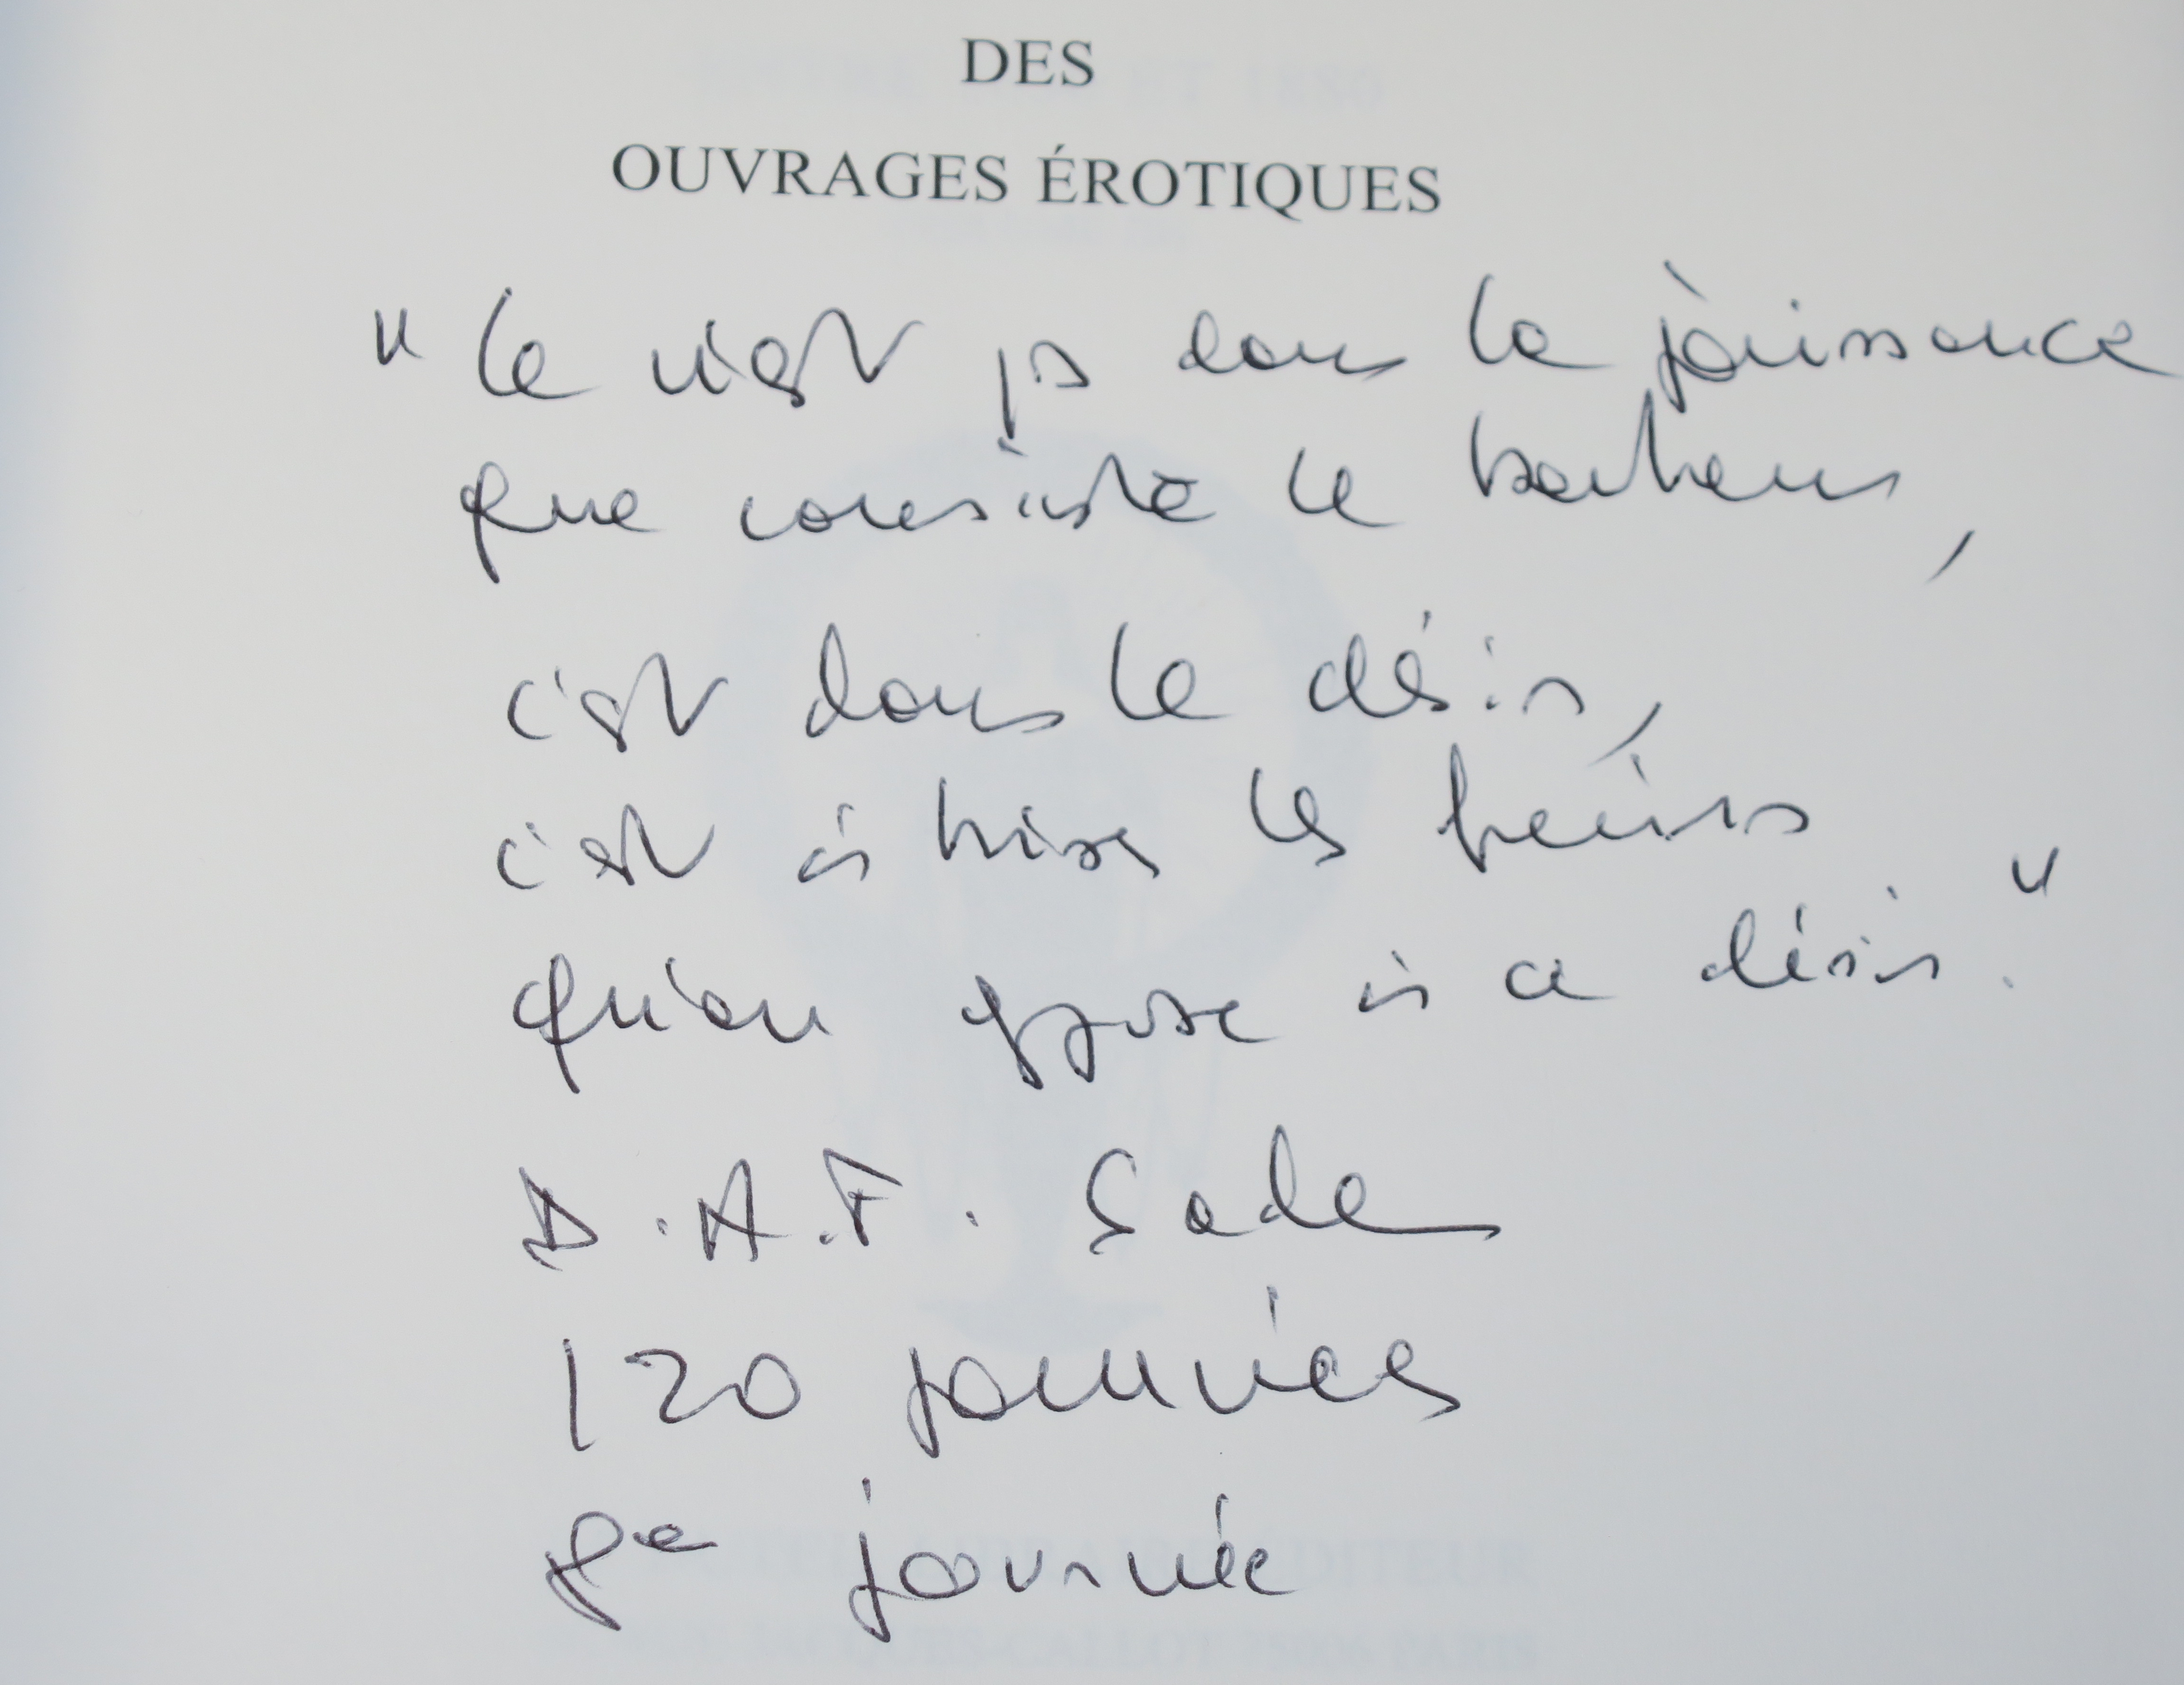 DES
OUVRAGES ÉROTIQUES
" Ce n'est ps dans la jouissance
que consiste le bonheur,
c'est dans le désir,
c'est à briser les freins
qu'on oppose à ce désir. "
D.A.F. Sade
120 journées
8e journée